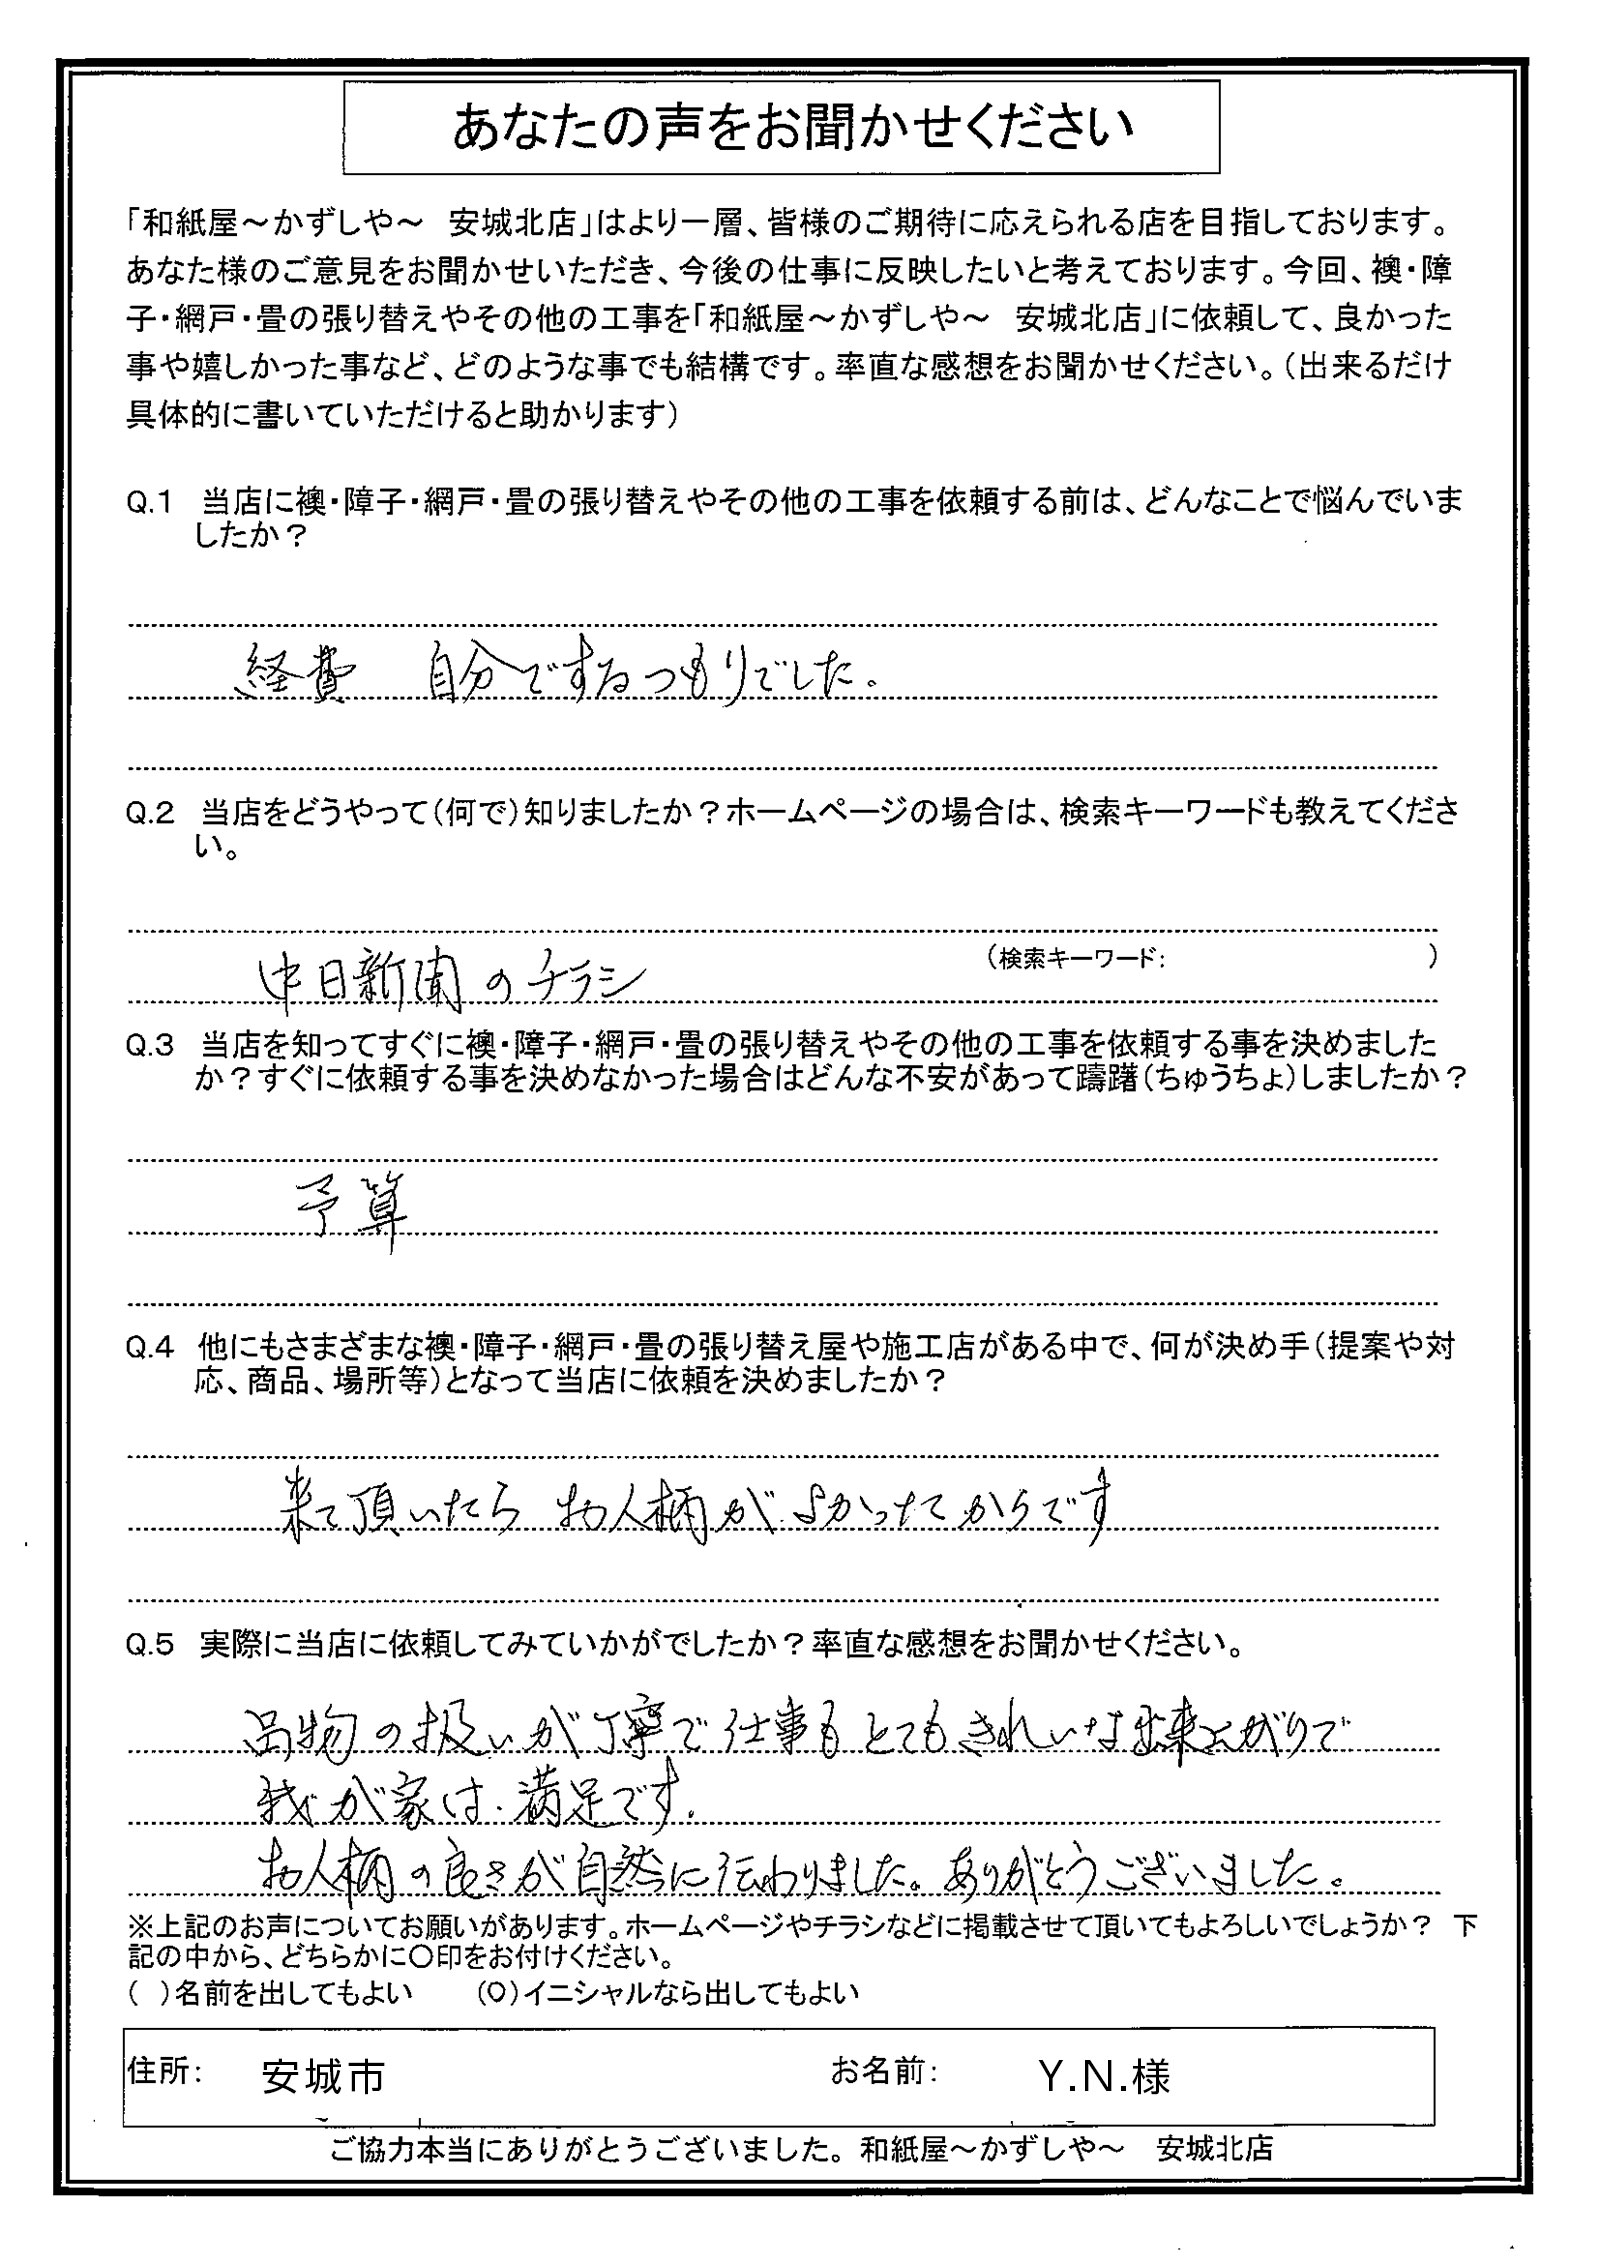 あなたの声をお聞かせください
「和紙屋～かずしや～　安城北店」はより一層、皆様のご期待に応えられる店を目指しております。
あなた様のご意見をお聞かせいただき、今後の仕事に反映したいと考えております。今回、襖・障
子・網戸・畳の張り替えやその他の工事を「和紙屋～かずしや～　安城北店」に依頼して、良かった
事や嬉しかった事など、どのような事でも結構です。率直な感想をお聞かせください。（出来るだけ
具体的に書いていただけると助かります）
Q.1　当店に襖・障子・網戸・畳の張り替えやその他の工事を依頼する前は、どんなことで悩んでいま
したか？
経費　自分でするつもりでした。
Q.2　当店をどうやって（何で）知りましたか？ホームページの場合は、検索キーワードも教えてくださ
い。
中日新聞のチラシ　（検索キーワード：　）
Q.3　当店を知ってすぐに襖・障子・網戸・畳の張り替えやその他の工事を依頼する事を決めました
か？すぐに依頼する事を決めなかった場合はどんな不安があって躊躇（ちゅうちょ）しましたか？
予算
Q.4　他にもさまざまな襖・障子・網戸・畳の張り替え屋や施工店がある中で、何が決め手（提案や対
応、商品、場所等）となって当店に依頼を決めましたか？
来て頂いたら　お人柄がよかったてからです
Q.5　実際に当店に依頼してみていかがでしたか？率直な感想をお聞かせください。
品物の扱いが丁寧で仕事もとてもきれいな出来上がりで
我が家は満足です.
お人柄の良さが自然に伝わりました。ありがとうございました。
※上記のお声についてお願いがあります。ホームページやチラシなどに掲載させて頂いてもよろしいでしょうか？　下
記の中から、どちらかに〇印をお付けください。
（　）名前を出してもよい　（〇）イニシャルなら出してもよい
住所：　安城市　お名前：　Y.N.様
ご協力本当にありがとうございました。和紙屋～かずしや～　安城北店